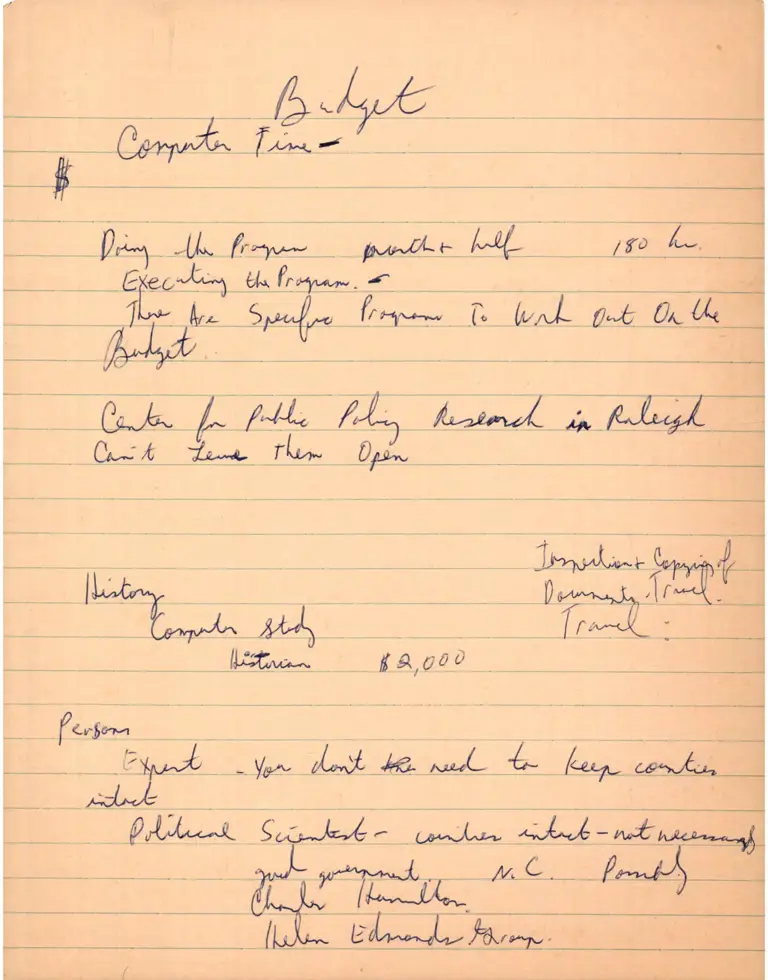 Budget
Computer Time -
$
Doing the Program month + half 180 hr.
Executing the Program. -
There Are Specific Programs To Work Out On the
Budget.
Center for Public Policy Research in Raleigh
Can't Leave Them Open
Inspection + Copying of
Documents. Travel.
Travel:
History
Computer Study
Historian $2,000
Persons
Expert - You don't need to keep counties
intact
Political Scientist - counties intact - not necessarily
good government. N.C. Possibly
Charles Hamilton.
Helen Edmonds Group.